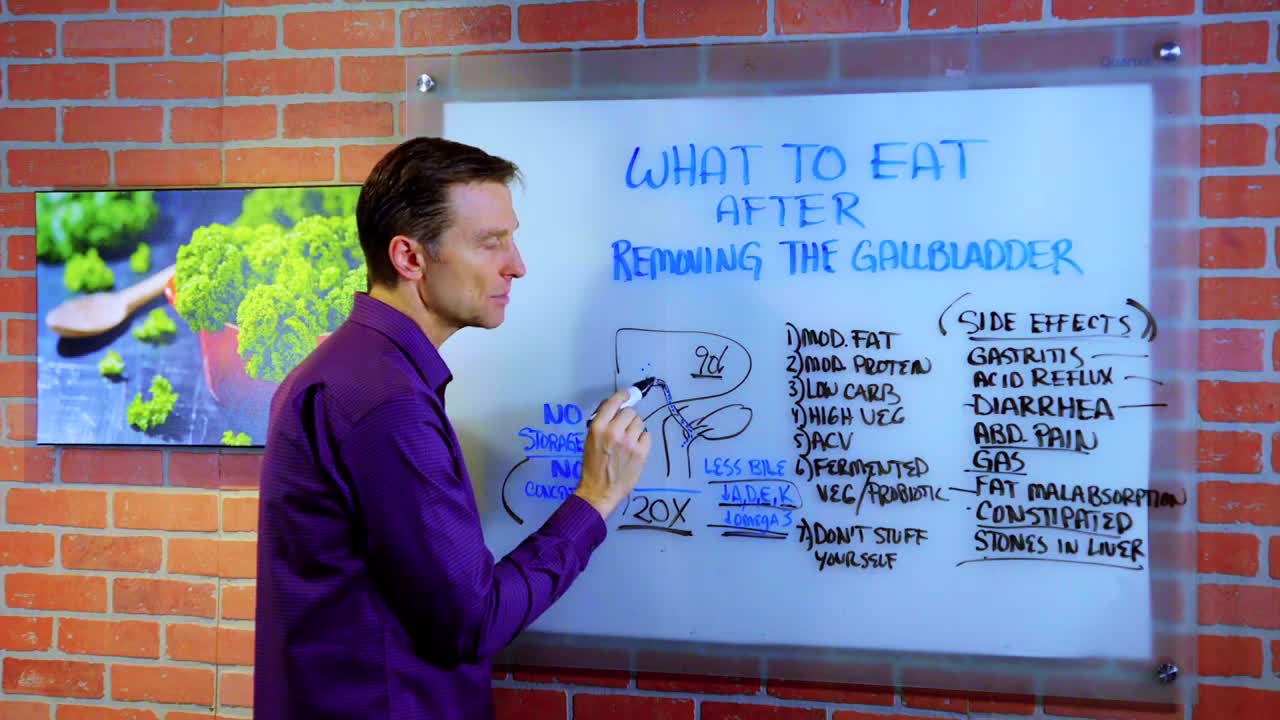 Quartet
WHAT TO EAT
AFTER
REMOVING THE GALLBLADDER
qd
NO
STORAGE
NO
20X
LESS BILE
↓A,D,E,K
↓OMEGA 3
1) MOD. FAT
2) MOD. PROTEIN
3) LOW CARB
4) HIGH VEG
5) ACV
6) FERMENTED
VEG/PROBIOTIC
7) DON'T STUFF
YOURSELF
(SIDE EFFECTS)
GASTRITIS
ACID REFLUX
DIARRHEA
ABD. PAIN
GAS
FAT MALABSORPTION
CONSTIPATED
STONES IN LIVER